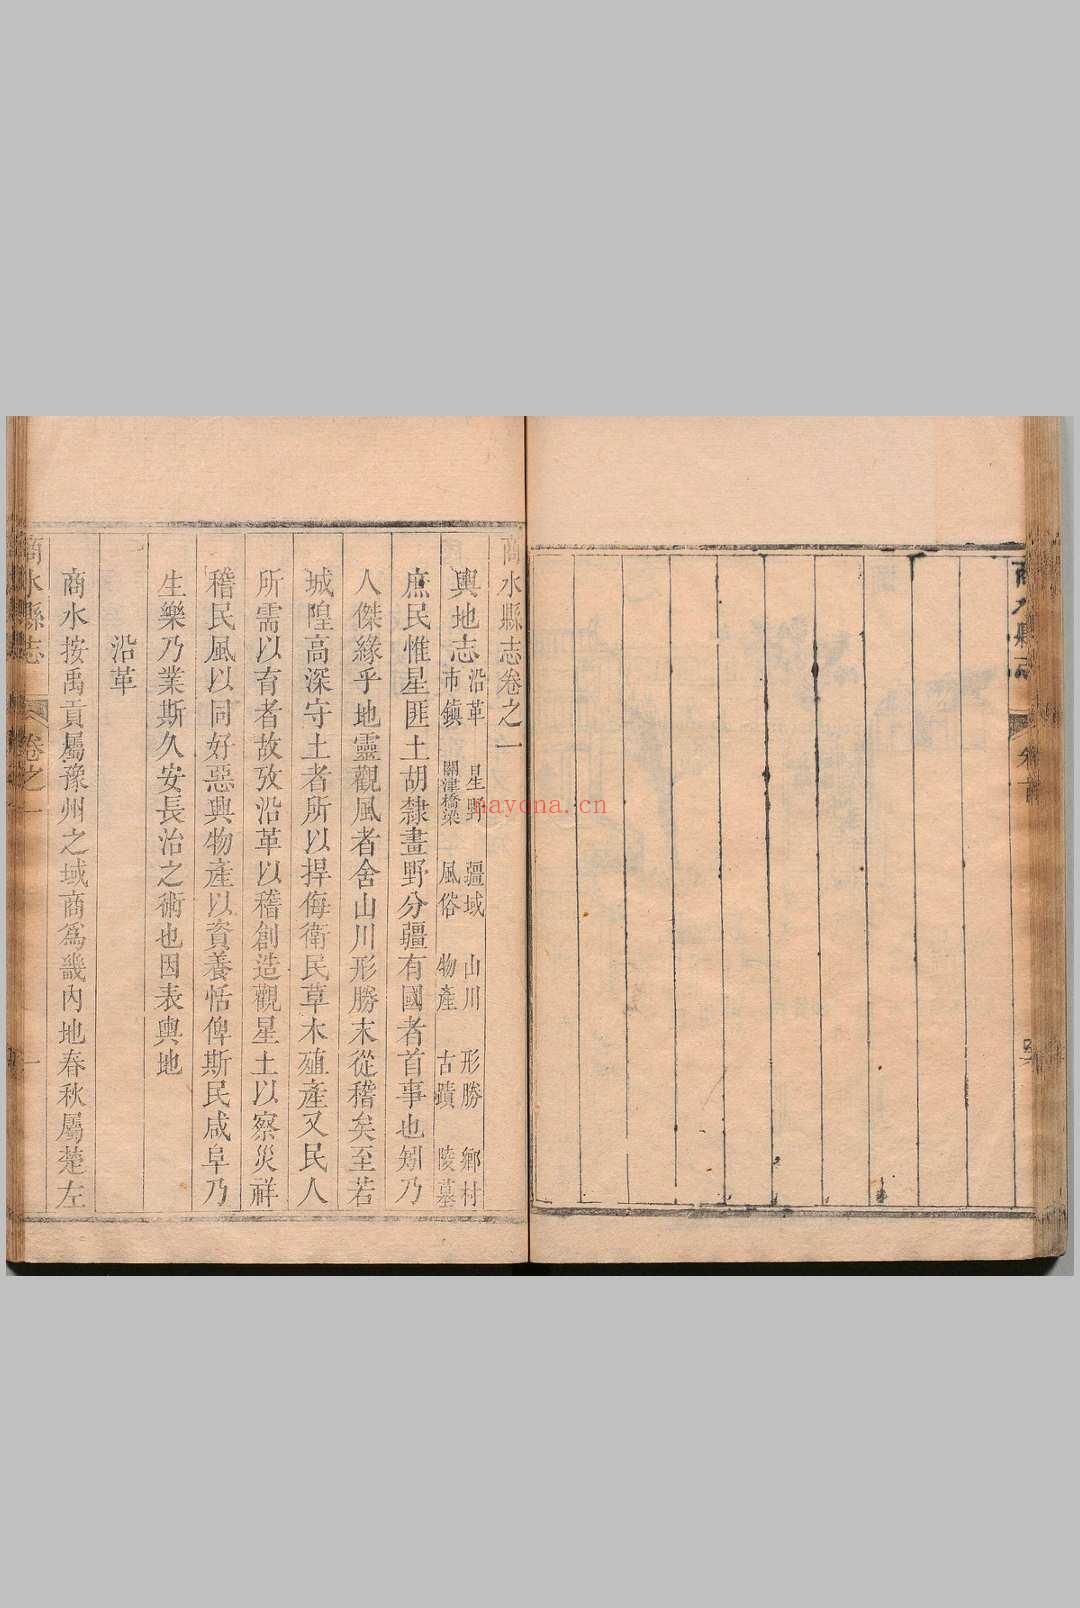 商水縣志
卷首
商水縣志卷之一
輿地志
沿革 星野 疆域 山川 形勝 鄉村
市鎮 關津橋梁 風俗 物產 古蹟 陵墓
庶民惟星匪土胡隸畫野分疆有國者首事也矧乃
人傑緣乎地靈觀風者舍山川形勝末從稽矣至若
城隍高深守土者所以捍侮衛民草木殖產又民人
所需以育者故攷沿革以稽創造觀星土以察災祥
稽民風以同好惡與物產以資養恬俾斯民咸阜乃
生樂乃業斯久安長治之術也因表輿地
沿革
商水按禹貢屬豫州之域商爲畿內地春秋屬楚左
商水縣志
卷之一
一
nayona.cn